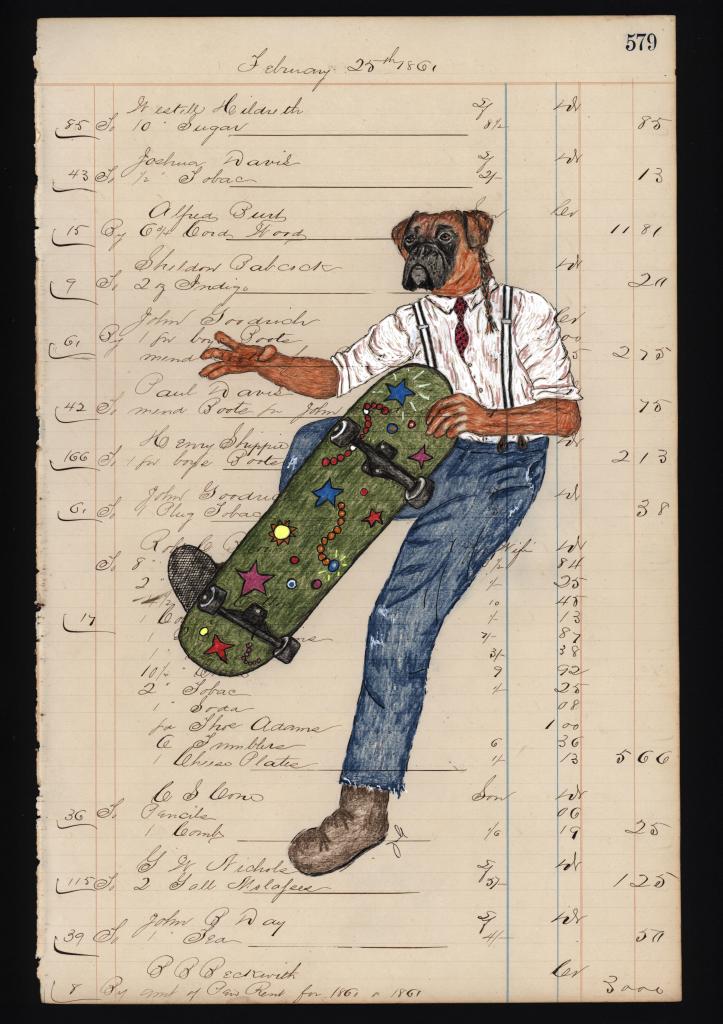 579
February 25th 1861
Westell Hildreth Dr
85 To 10 " Sugar 8½ 85
Joshua Davis Dr
43 To ½ " Tobac 2/- 13
Alfred Burt Son Cr
15 By 6¾ Cord Wood 11 81
Sheldon Babcock Dr
9 To 2 oz Indigo 20
John Goodrich Cr
61 By 1 for boys Boots 00
mend 5 2 75
Paul Davis
42 To mend Boots for John 75
Henry Shippie
166 To 1 for boys Boots 2 13
John Goodric Dr
61 To Plug Tobac 38
Wife Dr
To 8 " 84
2 " 25
10 48
17 1 13
1 " 7/- 87
1 " 3/- 38
10½ " 9 92
2 " Tobac 25
1 " Soda 08
for Shoe Adams 1 00
6 Tumblers 6 36
1 Cheese Plate 13 5 66
C S Cone Son Dr
36 To Pencils 06
1 Comb 1/6 19 25
G W Nichols Dr
115 To 2 Gall Molasses 5/- 1 25
John B Day Dr
39 To 1 " Tea 4/- 50
B B Beckwith Cr
8 By amt of Pew Rent for 1861 1861 3 000